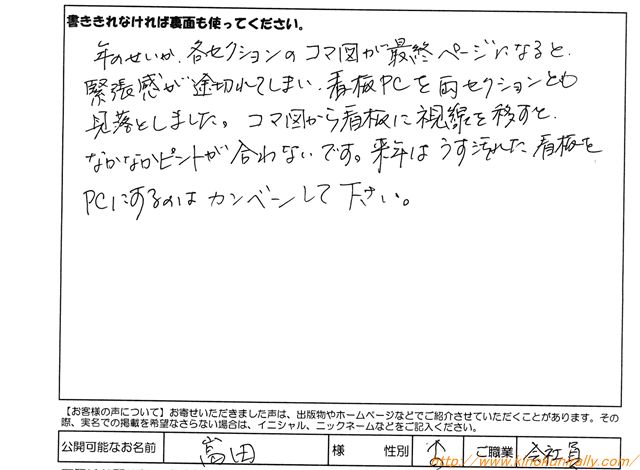 書ききれなければ裏面も使ってください。
年のせいか、各セクションのコマ図が最終ページになると、
緊張感が途切れてしまい、看板PCを両セクションとも
見落としました。コマ図から看板に視線を移すと、
なかなかピントが合わないです。来年はうす汚れた看板を
PCにするのはカンベンして下さい。
【お客様の声について】お寄せいただきました声は、出版物やホームページなどでご紹介させていただくことがあります。その
際、実名での掲載を希望なさらない場合は、イニシャル、ニックネームなどをご記入ください。
公開可能なお名前 富田 様 性別 ご職業 会社員